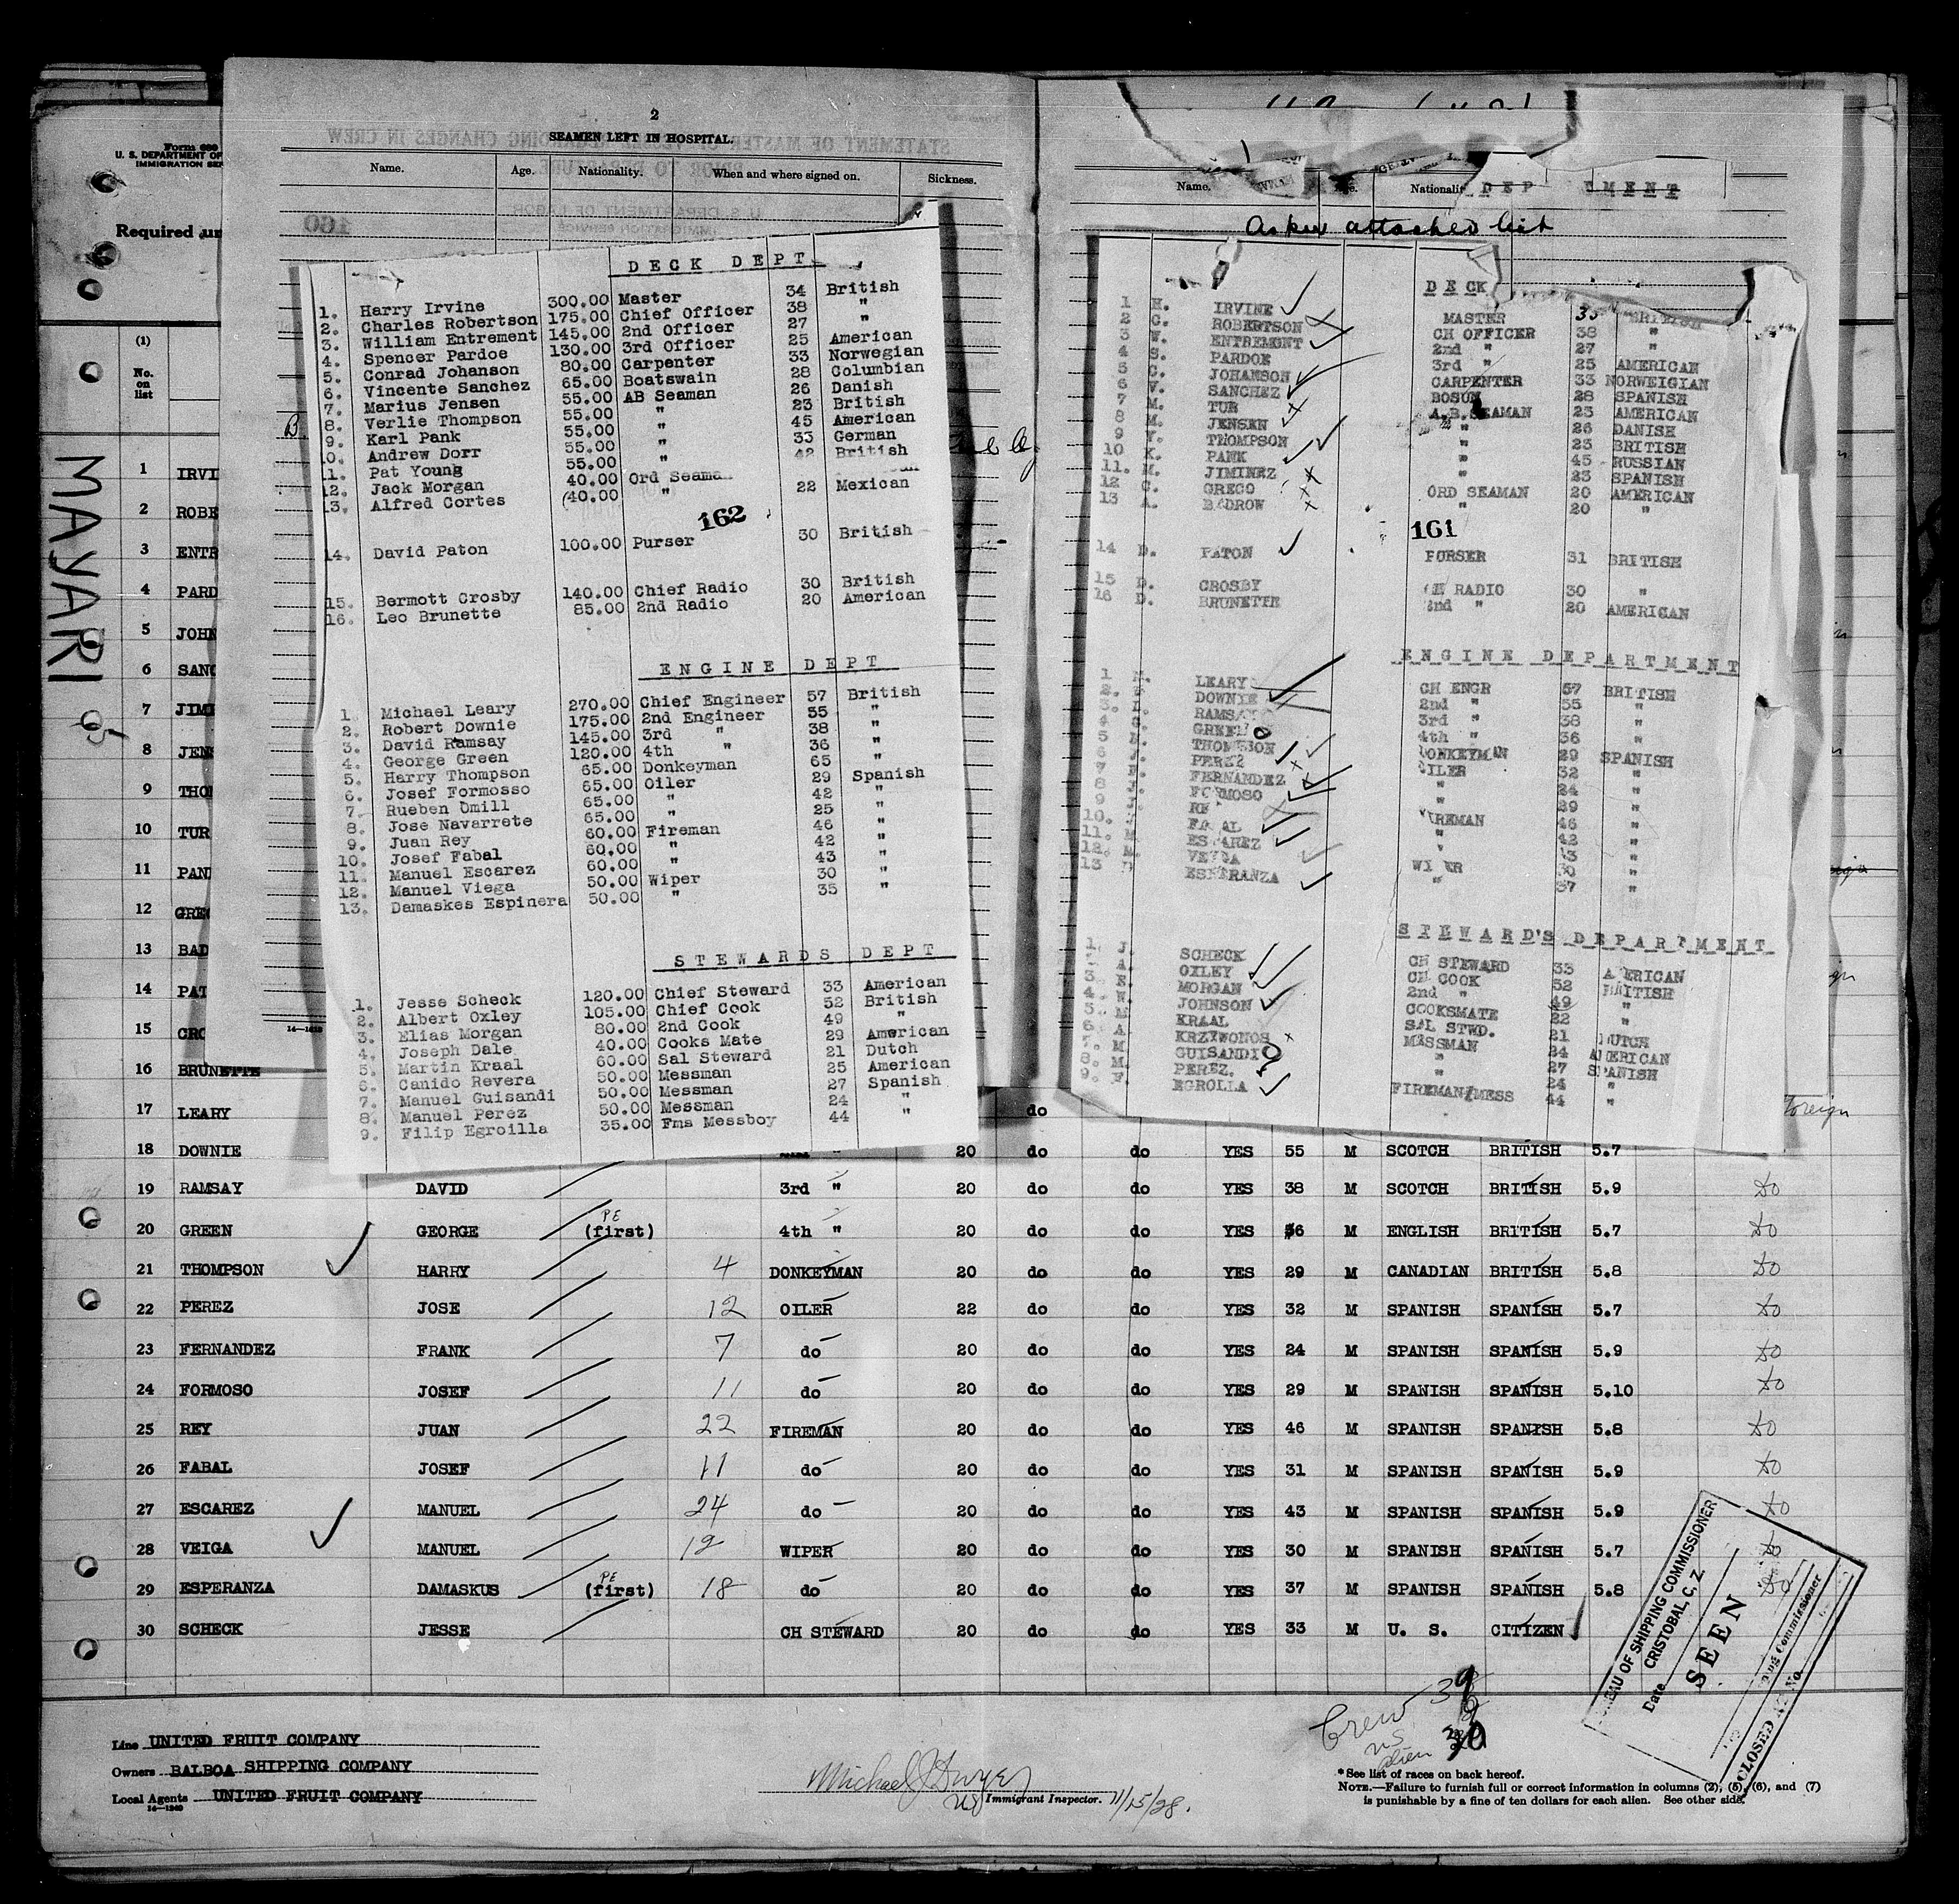 2
SEAMEN LEFT IN HOSPITAL.
Name. Age. Nationality. When and where signed on. Sickness.
Form 689
U. S. DEPARTMENT OF
IMMIGRATION SER
Required un
(1)
No. on list
MAYARI
160
162
DECK DEPT.
1. Harry Irvine 300.00 Master 34 British
2. Charles Robertson 175.00 Chief Officer 38 "
3. William Entrement 145.00 2nd Officer 27 "
4. Spencer Pardoe 130.00 3rd Officer 25 American
5. Conrad Johanson 80.00 Carpenter 33 Norwegian
6. Vincente Sanchez 65.00 Boatswain 28 Columbian
7. Marius Jensen 55.00 AB Seaman 26 Danish
8. Verlie Thompson 55.00 " 23 British
9. Karl Pank 55.00 " 45 American
10. Andrew Dorr 55.00 " 33 German
11. Pat Young 55.00 " 42 British
12. Jack Morgan 40.00 Ord Seaman
13. Alfred Cortes 40.00 " 22 Mexican
14. David Paton 100.00 Purser 30 British
15. Bermott Crosby 140.00 Chief Radio 30 British
16. Leo Brunette 85.00 2nd Radio 20 American
ENGINE DEPT
1. Michael Leary 270.00 Chief Engineer 57 British
2. Robert Downie 175.00 2nd Engineer 55 "
3. David Ramsay 145.00 3rd " 38 "
4. George Green 120.00 4th " 36 "
5. Harry Thompson 65.00 Donkeyman 65 "
6. Josef Formosso 65.00 Oiler 29 Spanish
7. Rueben Omill 65.00 " 42 "
8. Jose Navarrete 65.00 " 25 "
9. Juan Rey 60.00 Fireman 46 "
10. Josef Fabal 60.00 " 42 "
11. Manuel Escarez 60.00 " 43 "
12. Manuel Viega 50.00 Wiper 30 "
13. Damaskes Espinera 50.00 " 35 "
STEWARDS DEPT
1. Jesse Scheck 120.00 Chief Steward 33 American
2. Albert Oxley 105.00 Chief Cook 52 British
3. Elias Morgan 80.00 2nd Cook 49 "
4. Joseph Dale 40.00 Cooks Mate 29 American
5. Martin Kraal 60.00 Sal Steward 21 Dutch
6. Canido Revera 50.00 Messman 25 American
7. Manuel Guisandi 50.00 Messman 27 Spanish
8. Manuel Perez 50.00 Messman 24 "
9. Filip Egroilla 35.00 Fms Messboy 44 "
Name. Nationality
As per attached list
DECK DEP MENT
1 H. IRVINE MASTER 35 BRITISH
2 C. ROBERTSON CH OFFICER 38 "
3 W. ENTREMENT 2nd " 27 "
4 S. PARDOE 3rd " 25 AMERICAN
5 C. JOHANSON CARPENTER 33 NORWEIGIAN
6 V. SANCHEZ BOSUN 28 SPANISH
7 M. TUR A.B. SEAMAN 23 AMERICAN
8 M. JENSEN " 26 DANISH
9 V. THOMPSON " 23 BRITISH
10 K. PANK " 45 RUSSIAN
11. M. JIMINEZ " 23 SPANISH
12 C. GRECO ORD SEAMAN 20 AMERICAN
13 A. BADROW " 20 "
161
14 D. PATON PURSER 31 BRITISH
15 D. CROSBY CH RADIO 30 "
16 D. BRUNETTE 2nd " 20 AMERICAN
ENGINE DEPARTMENT
1 M. LEARY CH ENGR 57 BRITISH
2. DOWNIE 2nd " 55 "
3. RAMSAY 3rd " 38 "
4 G. GREEN 4th " 36 "
5 THOMPSON DONKEYMAN 29 SPANISH
6 PEREZ OILER 32 "
7 FERNANDEZ " 24 "
8 FORMOSO " 29 "
9 RE FIREMAN 46 "
10. FABAL " 42 "
11. M ESCAREZ " 43 "
12. M. VEIGA WIPER 30 "
13 ESPERANZA " 37 "
STEWARD'S DEPARTMENT
1. J. SCHECK CH STEWARD 33 AMERICAN
A. OXLEY CH COOK 52 BRITISH
3. E. MORGAN 2nd " 49 "
4. W. JOHNSON COOKSMATE 22 "
5. M KRAAL SAL STWD. 21 DUTCH
6. A. KRZYWONOS MESSMAN 24 AMERICAN
7. M. GUISANDI " 27 SPANISH
8. M. PEREZ. " 24 "
9. F. EGROLLA FIREMAN/MESS 44 "
1 IRVI
2 ROBE
3 ENTR
4 PARD
5 JOHN
6 SANC
7 JIMI
8 JENS
9 THOM
10 TUR
11 PAN
12 GREC
13 BAD
14 PAT
15 CRO
16 BRUNETTE
17 LEARY do foreign
18 DOWNIE 20 do do YES 55 M SCOTCH BRITISH 5.7
19 RAMSAY DAVID 3rd " 20 do do YES 38 M SCOTCH BRITISH 5.9 do
20 GREEN GEORGE PE (first) 4th " 20 do do YES 36 M ENGLISH BRITISH 5.7 do
21 THOMPSON HARRY 4 DONKEYMAN 20 do do YES 29 M CANADIAN BRITISH 5.8 do
22 PEREZ JOSE 12 OILER 22 do do YES 32 M SPANISH SPANISH 5.7 do
23 FERNANDEZ FRANK 7 do 20 do do YES 24 M SPANISH SPANISH 5.9 do
24 FORMOSO JOSEF 11 do 20 do do YES 29 M SPANISH SPANISH 5.10 do
25 REY JUAN 22 FIREMAN 20 do do YES 46 M SPANISH SPANISH 5.8 do
26 FABAL JOSEF 11 do 20 do do YES 31 M SPANISH SPANISH 5.9 do
27 ESCAREZ MANUEL 24 do 20 do do YES 43 M SPANISH SPANISH 5.9 do
28 VEIGA MANUEL 12 WIPER 20 do do YES 30 M SPANISH SPANISH 5.7 do
29 ESPERANZA DAMASKUS PE (first) 18 do 20 do do YES 37 M SPANISH SPANISH 5.8 do
30 SCHECK JESSE CH STEWARD 20 do do YES 33 M U. S. CITIZEN
BUREAU OF SHIPPING COMMISSIONER
CRISTOBAL, C, Z,
Date
SEEN
Commissioner
CLOSED No.
Line UNITED FRUIT COMPANY
Owners BALBOA SHIPPING COMPANY
Local Agents UNITED FRUIT COMPANY
14—1240
Michael J Dwyer
Immigrant Inspector. 11/15/28.
Crew 39
US 9
alien 30
* See list of races on back hereof.
NOTE.—Failure to furnish full or correct information in columns (2), (5), (6), and (7)
is punishable by a fine of ten dollars for each alien. See other side.